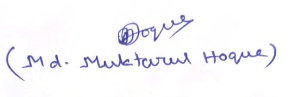 Hoque
(Md. Muktarul Hoque)